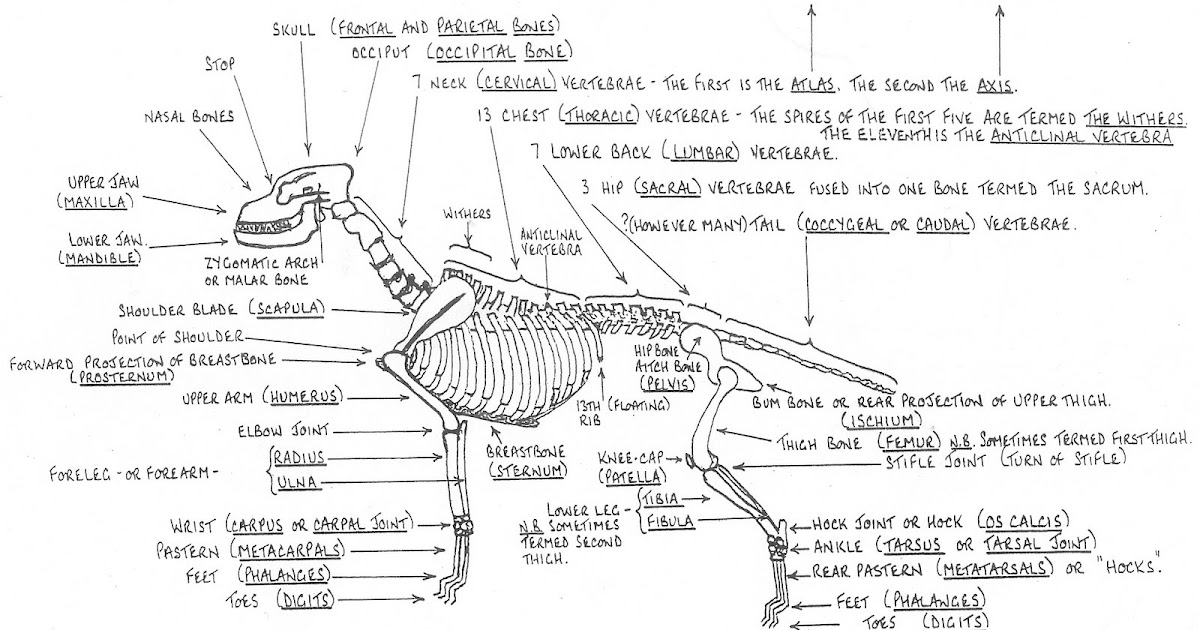 SKULL (FRONTAL AND PARIETAL BONES)
OCCIPUT (OCCIPITAL BONE)
STOP
7 NECK (CERVICAL) VERTEBRAE - THE FIRST IS THE ATLAS. THE SECOND THE AXIS.
NASAL BONES
13 CHEST (THORACIC) VERTEBRAE - THE SPIRES OF THE FIRST FIVE ARE TERMED THE WITHERS.
THE ELEVENTH IS THE ANTICLINAL VERTEBRA
7 LOWER BACK (LUMBAR) VERTEBRAE.
UPPER JAW
(MAXILLA)
3 HIP (SACRAL) VERTEBRAE FUSED INTO ONE BONE TERMED THE SACRUM.
WITHERS
?(HOWEVER MANY) TAIL (COCCYGEAL OR CAUDAL) VERTEBRAE.
LOWER JAW.
(MANDIBLE)
ANTICLINAL
VERTEBRA
ZYGOMATIC ARCH
OR MALAR BONE
SHOULDER BLADE (SCAPULA)
POINT OF SHOULDER
FORWARD PROJECTION OF BREASTBONE
(PROSTERNUM)
HIP BONE
AITCH BONE
(PELVIS)
UPPER ARM (HUMERUS)
13TH (FLOATING)
RIB
BUM BONE OR REAR PROJECTION OF UPPER THIGH.
(ISCHIUM)
ELBOW JOINT
THIGH BONE (FEMUR) N.B. SOMETIMES TERMED FIRST THIGH.
BREASTBONE
(STERNUM)
KNEE-CAP
(PATELLA)
STIFLE JOINT (TURN OF STIFLE)
FORELEG - OR FOREARM -
RADIUS
ULNA
LOWER LEG -
N.B. SOMETIMES
TERMED SECOND
THIGH.
TIBIA
FIBULA
WRIST (CARPUS OR CARPAL JOINT)
HOCK JOINT OR HOCK (OS CALCIS)
PASTERN (METACARPALS)
ANKLE (TARSUS OR TARSAL JOINT)
FEET (PHALANGES)
REAR PASTERN (METATARSALS) OR "HOCKS".
TOES (DIGITS)
FEET (PHALANGES)
TOES (DIGITS)